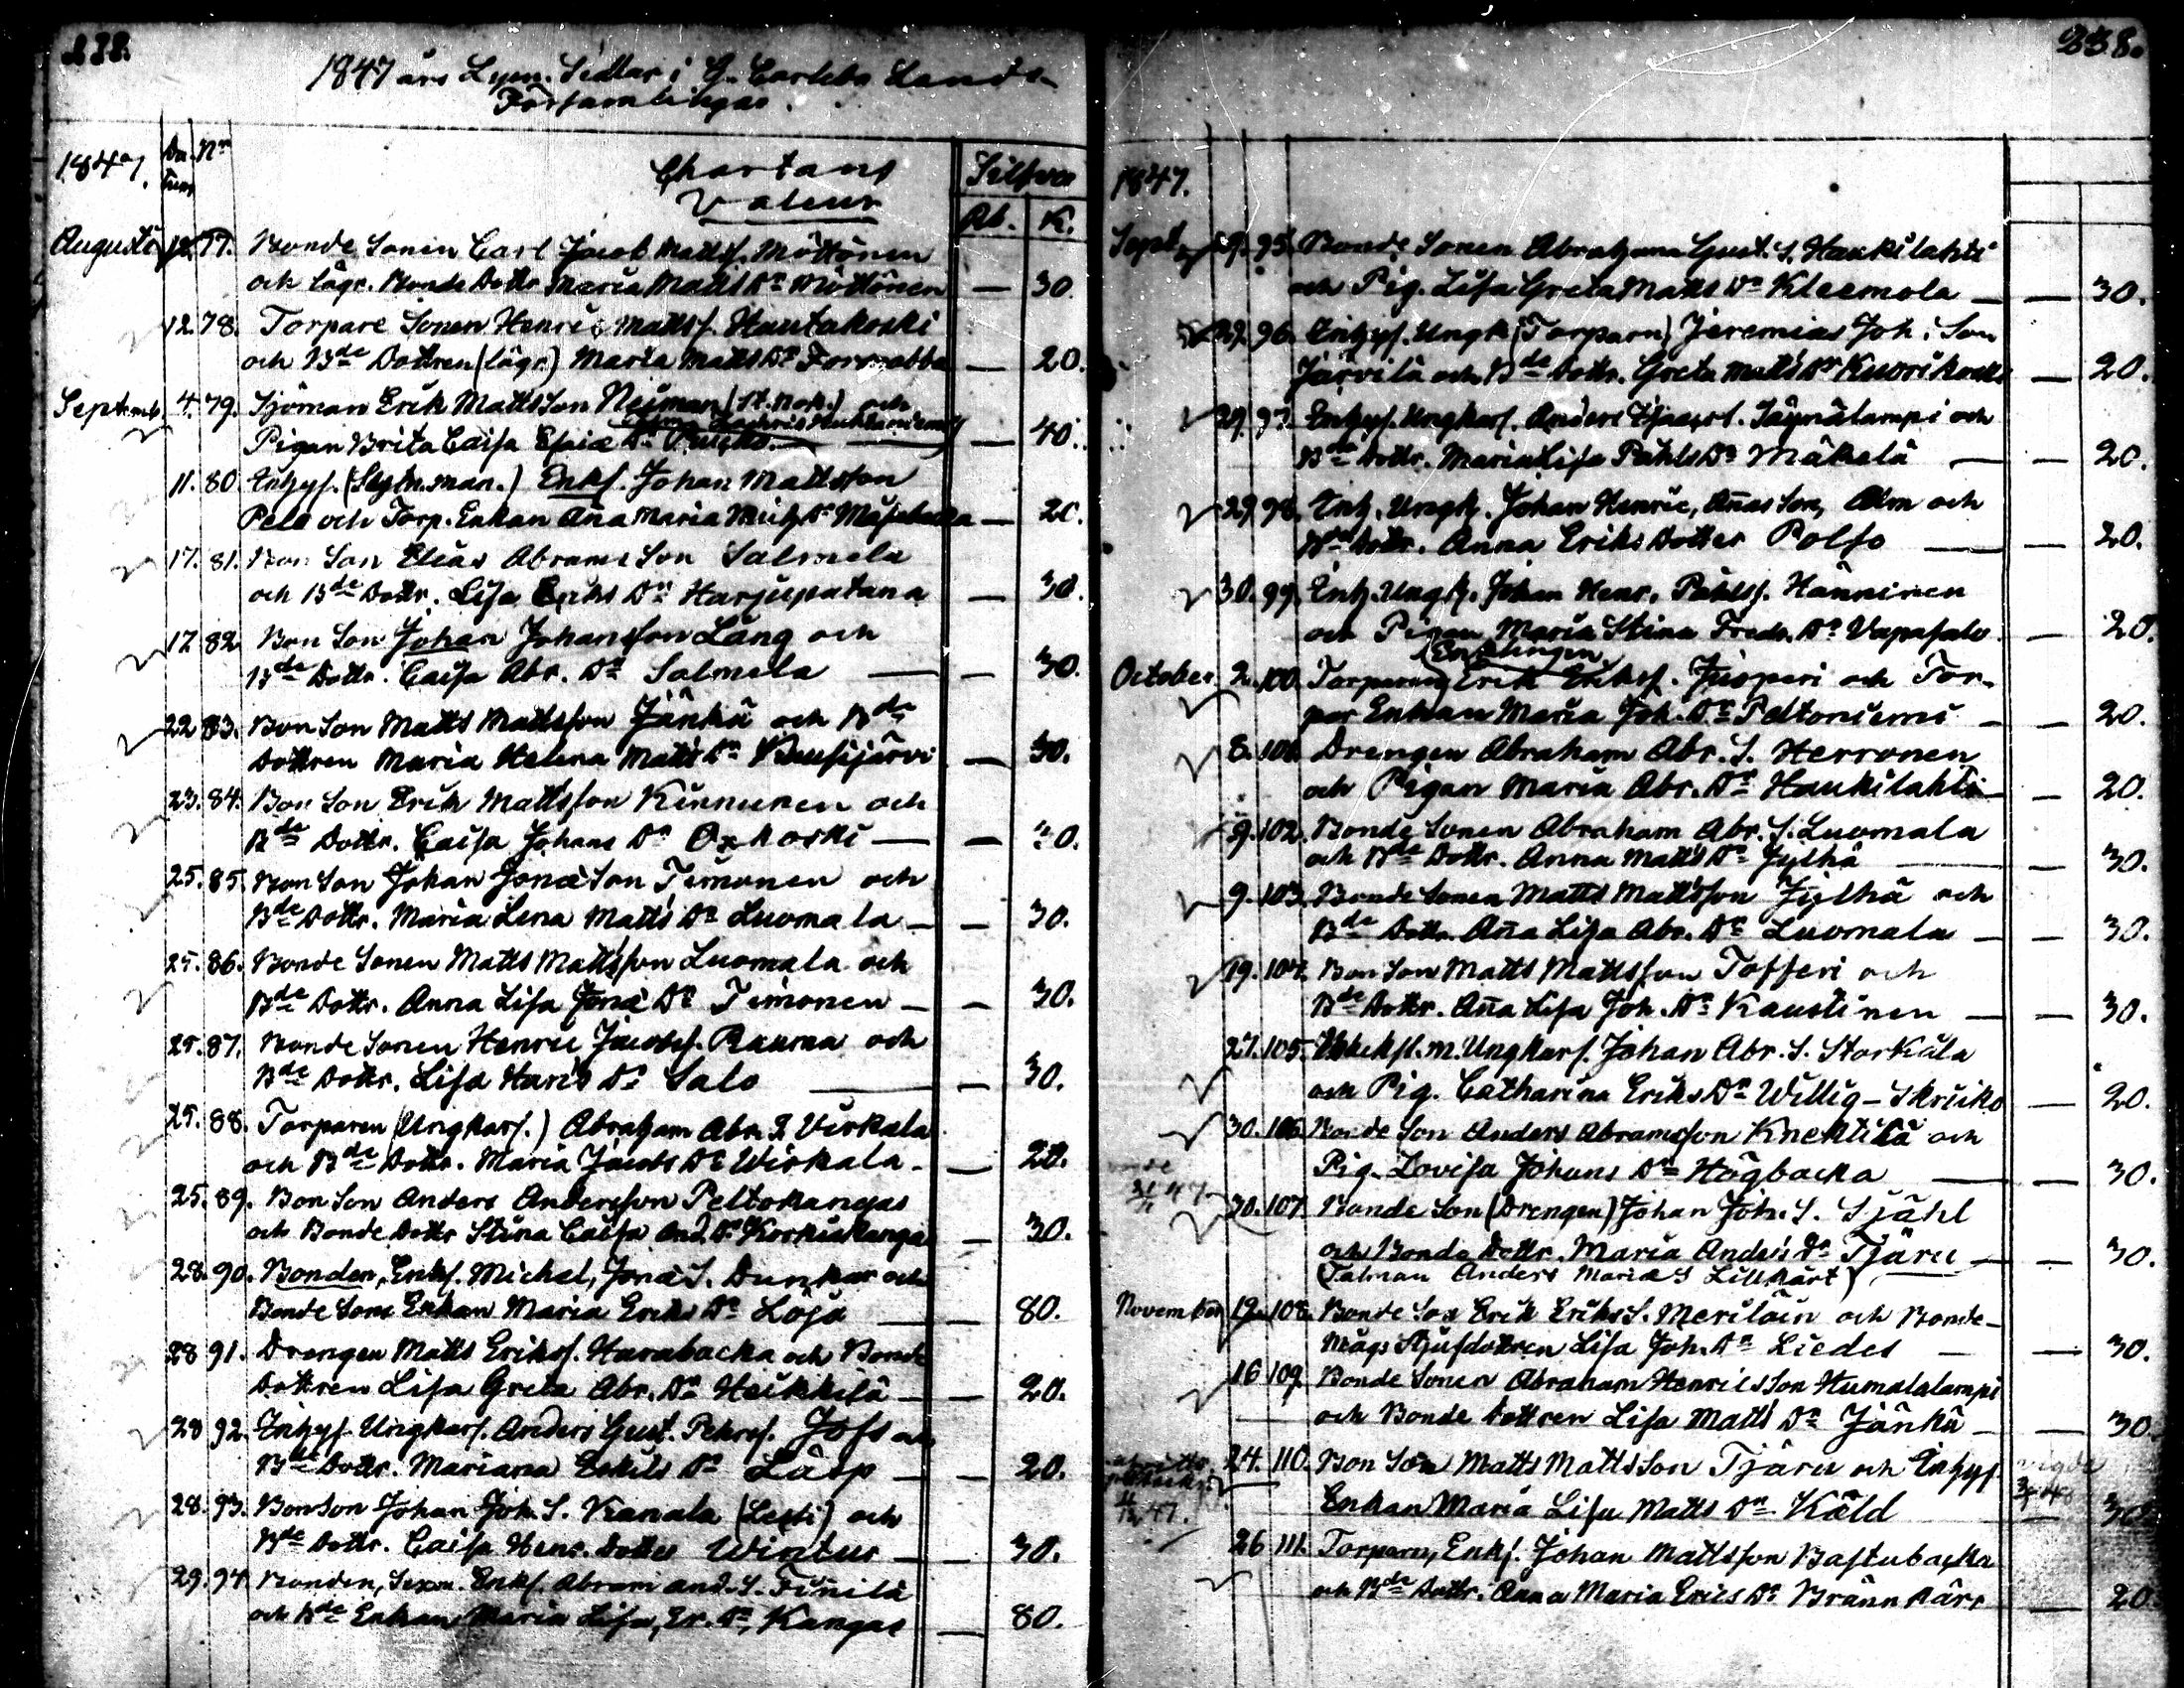 238.
1847 års Lysn. Sedlar i G. Carleby Lands-
Församlingar.
1847. Da- tum Nr
Chartans
Valeur
Silfver
Rb. K.
Augusti 12. 77. Bonde Sonen Carl Jacob Mattss. Möttönen
och lägr. Bonde Dottr Maria Matts Dr Möttönen — 30.
12. 78. Torpare Sonen Henric Mattss. Hautakoski
och Bde Dottren (lägr.) Maria Matts Dr Forsnabba — 20.
Septemb. 4. 79. Sjöman Erik Mattsson Neiman och
Pigan Brita Caisa Esaiæ Dr — 40.
11. 80. Inhys. Enkl. Johan Mattsson
Pelo och Torp. Enkan Aña Maria Mich Dr — 20.
17. 81. Bon Son Elias Abrams Son Salmela
och Bde Dottr. Lisa Eriks Dr Harjupatana — 30.
17 82 Bon Son Johan Johansson Lång och
Bde Dottr. Caisa Abr. Dr Salmela — 30.
22 83. Bon Son Matts Mattsson Jänkä och Bde
Dottren Maria Helena Matts Dr Kausijärvi — 30.
23. 84. Bon Son Erik Mattsson Kinnunen och
Bde Dottr. Caisa Johans Dr Oxkoski —
25. 85. Bon Son Johan Jonæ Son Timonen och
Bde Dottr. Maria Lena Matts Dr Luomala — 30.
25. 86. Bonde Sonen Matts Mattsson Luomala och
Bde Dottr. Anna Lisa Jonæ Dr Timonen — 30.
25. 87. Bonde Sonen Henric Jacobss. Rauma och
Bde Dottr. Lisa Hans Dr Salo — 30.
25. 88. Torparen (Ungkarl.) Abraham Abr. S. Virkala
och Bde Dottr. Maria Jacobs Dr Wirkala — 20.
25. 89. Bon Son Anders Andersson Peltokangas
och Bonde Dottr Stina Caisa And. Dr Korkiakangas — 30.
28. 90. Bonden, Enkl. Michel, Jonæ S. Dunkar och
Bonde Sons Enkan Maria Eriks Dr Löja — 80.
28 91. Drengen Matts Erikss. Harabacka och Bonde
Dottren Lisa Greta Abr. Dr Heikkilä — 20.
28 92. Inhys. Ungkarl. Anders Gust. Pehrss. Jofs och
Bde Dottr. Mariana Eskils Dr Läsp — 20.
28. 93. Bonson Johan Joh. S. Kanala (Lesti) och
Bde Dottr. Caisa Henr. Dotter Wintur — 30.
29. 94 Bonden, Enkl. Abram And. S. Finnilä
och Bde Enkan Maria Lisa, Er. Dr, Kangas — 80.
238.
1847.
Sept. 29. 95. Bonde Sonen Abraham Gust. S. Haukilahti
och Pig. Lisa Greta Matts Dr Kleemola — 30.
29. 96. Inhys. Ungk. (Torparn) Jeremias Joh. Son
Järvilä och Bde Dottr. Greta Matts Dr Kuorikoski — 20.
29. 97. Inhys. Ungkarl. Anders och
Bde Dottr. Maria Lisa Påhls Dr Mäkelä — 20.
29. 98. Inh. Ungk. Johan Henric, Añas Son, Alm och
Bde Dottr. Anna Eriks Dotter Polso — 20.
30. 99. Inh. Ungk. Johan Henr. Påhlss. Hänninen
och Pigan Maria Stina Fredr. Dr Vapasalo — 20.
(Enklingen)
October. 2. 100. Torparen Erik Erikss. Juoperi och Tor-
par Enkan Maria Joh. Dr Peltoniemi — 20.
8. 101. Drengen Abraham Abr. S. Herronen
och Pigan Maria Abr. Dr Haukilahti — 20.
9. 102. Bonde Sonen Abraham Abr. S. Luomala
och Bde Dottr. Anna Matts Dr Jylhä — 30.
9. 103. Bonde Sonen Matts Mattsson Jylhä och
Bde Dottr. Aña Lisa Abr. Dr Luomala — 30.
19. 104. Bon Son Matts Mattsson Tofferi och
Bde Dottr. Aña Lisa Joh. Dr Kaustinen — 30.
27. 105. Ungkarl. Johan Abr. S. Storkåla
och Pig. Catharina Eriks Dr Willig-Skriiko — 20.
30. 106. Bonde Son Anders Abramsson Knektilä och
Pig. Lovisa Johans Dr Högbacka — 30.
30. 107. Bonde Son (Drengen) Johan Joh. S. Sjähl
och Bonde Dottr. Maria Anders Dr Tjäru — 30.
(Talman Anders Lillkärt)
November 12. 108. Bonde Son Erik Eriks S. Meriläin och Bonde-
Mågs Stjufdottren Lisa Joh. Dr Liedes — 30.
16 109. Bonde Sonen Abraham Henrics Son Humalalampi
och Bonde Dottren Lisa Matts Dr Jänkä — 30.
24. 110. Bon Son Matts Mattsson Tjäru och Inhys
Enkan Maria Lisa Matts Dr Käld — 30.
26 111. Torparn, Enkl. Johan Mattsson Bastubacka
och Bde Dottr. Anna Maria Erics Dr Brännkärr — 20.